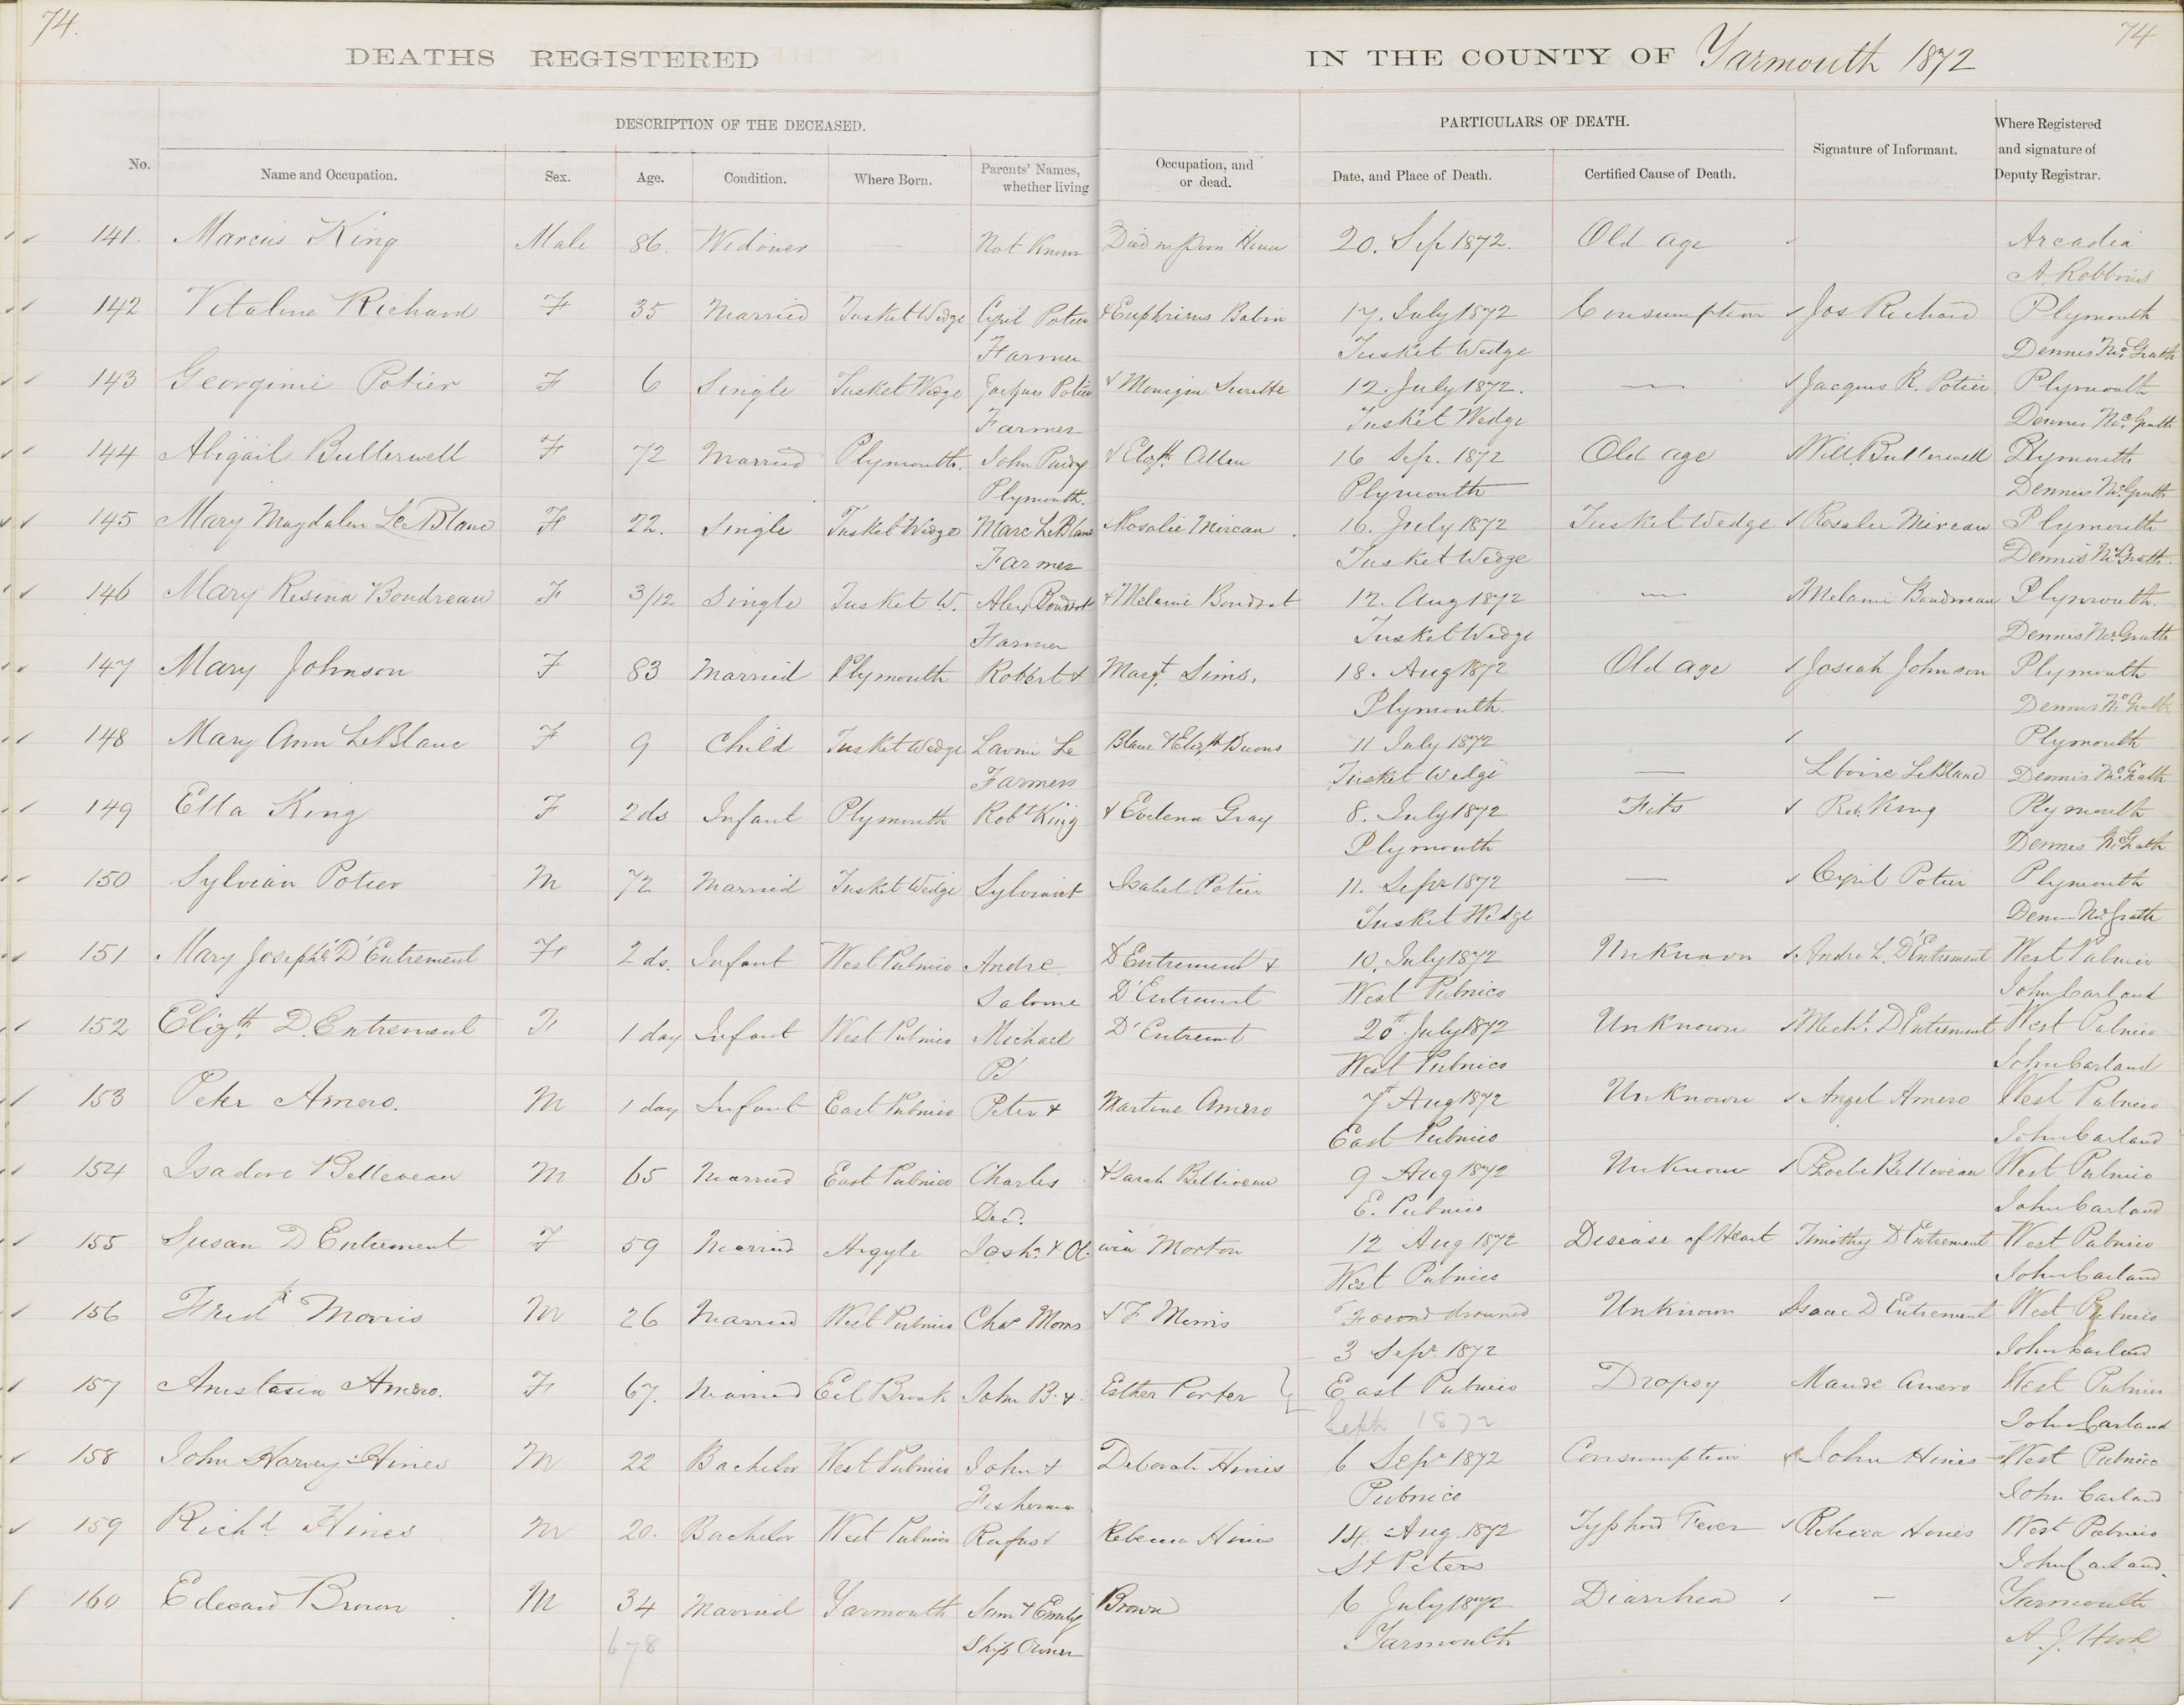 74.
74
DEATHS REGISTERED IN THE COUNTY OF Yarmouth 1872
DESCRIPTION OF THE DECEASED. PARTICULARS OF DEATH.
No. Name and Occupation. Sex. Age. Condition. Where Born. Parents' Names, whether living Occupation, and or dead. Date, and Place of Death. Certified Cause of Death. Signature of Informant. Where Registered and signature of Deputy Registrar.
141. Marcus King Male 86. Widower — Not Known Died in Poor House 20. Sep 1872. Old age Arcadia
A. Robbins
142 Vitaline Richard F 35 Married Tusket Wedge Cyril Potier & Euphrisus Babin 17. July 1872 Consumption Jos Richard Plymouth
Farmer Tusket Wedge Dennis McGrath
143 Georgini Potier F 6 Single Tusket Wedge Jacques Potier & Monique Surette 12. July 1872. — Jacques R. Potier Plymouth
Farmer Tusket Wedge Dennis McGrath
144 Abigail Butterwell F 72 Married Plymouth. John Purdy & Elizth Allen 16 Sep. 1872 Old age Will Butterwell Plymouth
Plymouth. Plymouth Dennis McGrath
145 Mary Magdalen LeBlanc F 22. Single Tusket Wedge Marc LeBlanc Rosalie Mircau 16. July 1872 Tusket Wedge Rosalie Mircau Plymouth
Farmer Tusket Wedge Dennis McGrath.
146 Mary Resina Boudreau F 3/12 Single Tusket W. Alex Boudrot & Melanie Boudrot 12. Aug 1872 — Melanie Boudreau Plymouth.
Farmer Tusket Wedge Dennis McGrath
147 Mary Johnson F 83 Married Plymouth Robert & Margt. Sims. 18. Aug 1872 Old age Josiah Johnson Plymouth
Plymouth. Dennis McGrath
148 Mary Ann LeBlanc F 9 Child Tusket Wedge Le Blanc & Elizth 11 July 1872 Plymouth
Farmers Tusket Wedge — LeBlanc Dennis McGrath
149 Ella King F 2 ds Infant Plymouth Robt King & Evelena Gray 8. July 1872 Fits Rob. King Plymouth
Plymouth Dennis McGrath
150 Sylvian Potier M 72 Married Tusket Wedge Isabel Potier 11. Sepr 1872 — Cyril Potier Plymouth
Tusket Wedge McGrath
151 Mary Josephe D'Entrement F 2 ds. Infant West Pubnico Andre D'Entrement & 10. July 1872 Unknown Andre L. D'Entrement West Pubnico
Salome D'Entremt West Pubnico John Carland
152 Elizth. D Entrement F 1 day Infant West Pubnico Michael D'Entremt 20th. July 1872 Unknown Michl. D Entrement West Pubnico
West Pubnico John Carland
153 Peter Amero. M 1 day Infant East Pubnico Peter & Martine Amero 7th Aug 1872 Unknown Angel Amero West Pubnico
East Pubnico John Carland
154 Isadore Belleveau M 65 Married East Pubnico Charles & Sarah Belliveau 9 Aug 1872 Unknown Phoebe Belliveau West Pubnico
Decd. E. Pubnico John Carland
155 Susan D Entrement F 59 Married Argyle Josh. & Ol- ivia Morton 12 Aug 1872 Disease of Heart Timothy D Entrement West Pubnico
West Pubnico John Carland
156 Fredk Morris M 26 Married West Pubnico Chas Morris & F Morris Found drowned Unknown Isaac D Entrement West Pubnico
3 Sepr. 1872 John Carland
157 Anastasia Amero. F 67. Married Eel Brook John B. & Esther Porter } East Pubnico Dropsy Maude Amero West Pubnico
Septr 1872 John Carland
158 John Harvey Hines M 22 Bachelor West Pubnico John & Deborah Hines 6 Sepr 1872 Consumption John Hines West Pubnico
Fisherman Pubnico John Carland
159 Richd Hines M 20. Bachelor West Pubnico Rufus & Rebecca Hines 14. Aug. 1872 Typhoid Fever Rebecca Hines West Pubnico
St Peters John Carland.
160 Edward Brown M 34 Married Yarmouth Sam & Emily Brown 6 July 1872 Diarrhea — Yarmouth
678 Ship Owner Yarmouth A. J. Hood